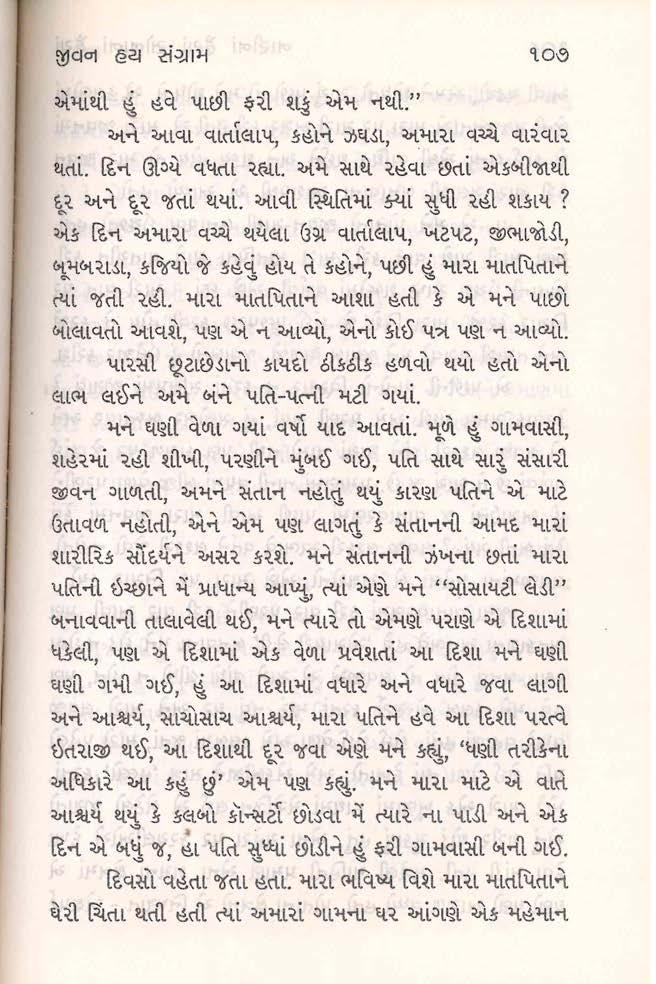 જીવન હય સંગ્રામ ૧૦૭
એમાંથી હું હવે પાછી ફરી શકું એમ નથી.”
અને આવા વાર્તાલાપ, કહોને ઝઘડા, અમારા વચ્ચે વારંવાર
થતાં. દિન ઊગ્યે વધતા રહ્યા. અમે સાથે રહેવા છતાં એકબીજાથી
દૂર અને દૂર જતાં થયાં. આવી સ્થિતિમાં ક્યાં સુધી રહી શકાય ?
એક દિન અમારા વચ્ચે થયેલા ઉગ્ર વાર્તાલાપ, ખટપટ, જીભાજોડી,
બૂમબરાડા, કજિયો જે કહેવું હોય તે કહોને, પછી હું મારા માતપિતાને
ત્યાં જતી રહી. મારા માતપિતાને આશા હતી કે એ મને પાછો
બોલાવતો આવશે, પણ એ ન આવ્યો, એનો કોઈ પત્ર પણ ન આવ્યો.
પારસી છૂટાછેડાનો કાયદો ઠીકઠીક હળવો થયો હતો એનો
લાભ લઈને અમે બંને પતિ-પત્ની મટી ગયાં.
મને ઘણી વેળા ગયાં વર્ષો યાદ આવતાં. મૂળે હું ગામવાસી,
શહેરમાં રહી શીખી, પરણીને મુંબઈ ગઈ, પતિ સાથે સારું સંસારી
જીવન ગાળતી, અમને સંતાન નહોતું થયુ કારણ પતિને એ માટે
ઉતાવળ નહોતી, એને એમ પણ લાગતું કે સંતાનની આમદ મારાં
શારીરિક સૌંદર્યને અસર કરશે. મને સંતાનની ઝંખના છતાં મારા
પતિની ઇચ્છાને મેં પ્રાધાન્ય આપ્યું, ત્યાં એણે મને “સોસાયટી લેડી”
બનાવવાની તાલાવેલી થઈ, મને ત્યારે તો એમણે પરાણે એ દિશામાં
ધકેલી, પણ એ દિશામાં એક વેળા પ્રવેશતાં આ દિશા મને ઘણી
ઘણી ગમી ગઈ, હું આ દિશામાં વધારે અને વધારે જવા લાગી
અને આશ્ચર્ય, સાચોસાચ આશ્ચર્ય, મારા પતિને હવે આ દિશા પરત્વે
ઇતરાજી થઈ, આ દિશાથી દૂર જવા એણે મને કહ્યું, ‘ધણી તરીકેના
અધિકારે આ કહું છું’ એમ પણ કહ્યું. મને મારા માટે એ વાતે
આશ્ચર્ય થયું કે કલબો કૉન્સર્ટો છોડવા મેં ત્યારે ના પાડી અને એક
દિન એ બધું જ, હા પતિ સુધ્ધાં છોડીને હું ફરી ગામવાસી બની ગઈ.
દિવસો વહેતા જતા હતા. મારા ભવિષ્ય વિશે મારા માતપિતાને
ઘેરી ચિંતા થતી હતી ત્યાં અમારાં ગામના ઘર આંગણે એક મહેમાન